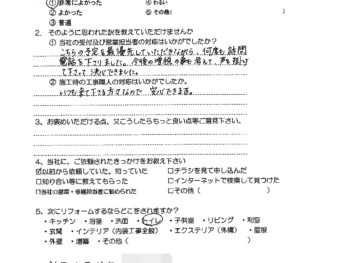 ①非常によかった　④わるい
②よかった　⑤その他(　　)
③普通
2．そのように思われた訳を教えていただけませんか
①当社の受付及び営業担当者の対応はいかがでしたか?
こちらの予定を最優先していただきながら、何度も訪問
電話を下さりました。今後の増税の事も考えて、声を掛け
て下さって決心できました。
②施工時の工事職人の対応はいかがでしたか?
いつも来て下さる方々なので安心できます。
3、お褒めいただける点、又こうしたらもっと良い点等ご意見下さい。
4、当社に、ご依頼されたきっかけをお教え下さい
☑以前から依頼していた、知っていた　□チラシを見て申し込んだ
□知り合い等に教えてもらった　□インターネットで検索して見つけた
□当社の営業・修繕担当者に勧められた　□その他(　　)
5、次にリフォームするならどこをされますか?
・キッチン　・浴室　・洗面　・トイレ　・子供室　・リビング　・和室
・玄関　・インテリア（内装工事全般）　・エクステリア（外構）　・屋根
・外壁　・増築　・その他(　　)